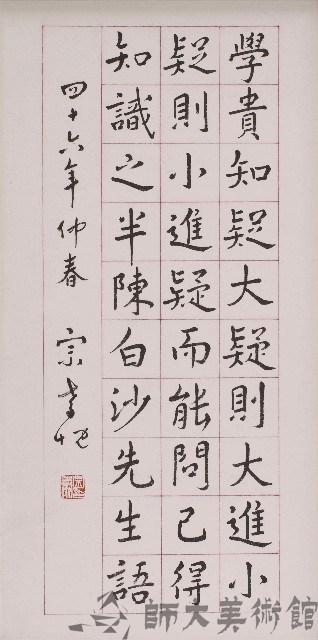 學貴知疑大疑則大進小
疑則小進疑而能問已得
知識之半陳白沙先生語
四十六年仲春 宗孝忱
師大美術館